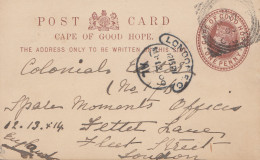 POST CARD
CAPE OF GOOD HOPE.
THE ADDRESS ONLY TO BE WRITTEN ON THIS SIDE
CAPE OF GOOD HOPE
ONE PENNY
LONDON
Colonials
Spare Moments Offices
12.13 & 14
Fetter Lane
Fleet Street
London